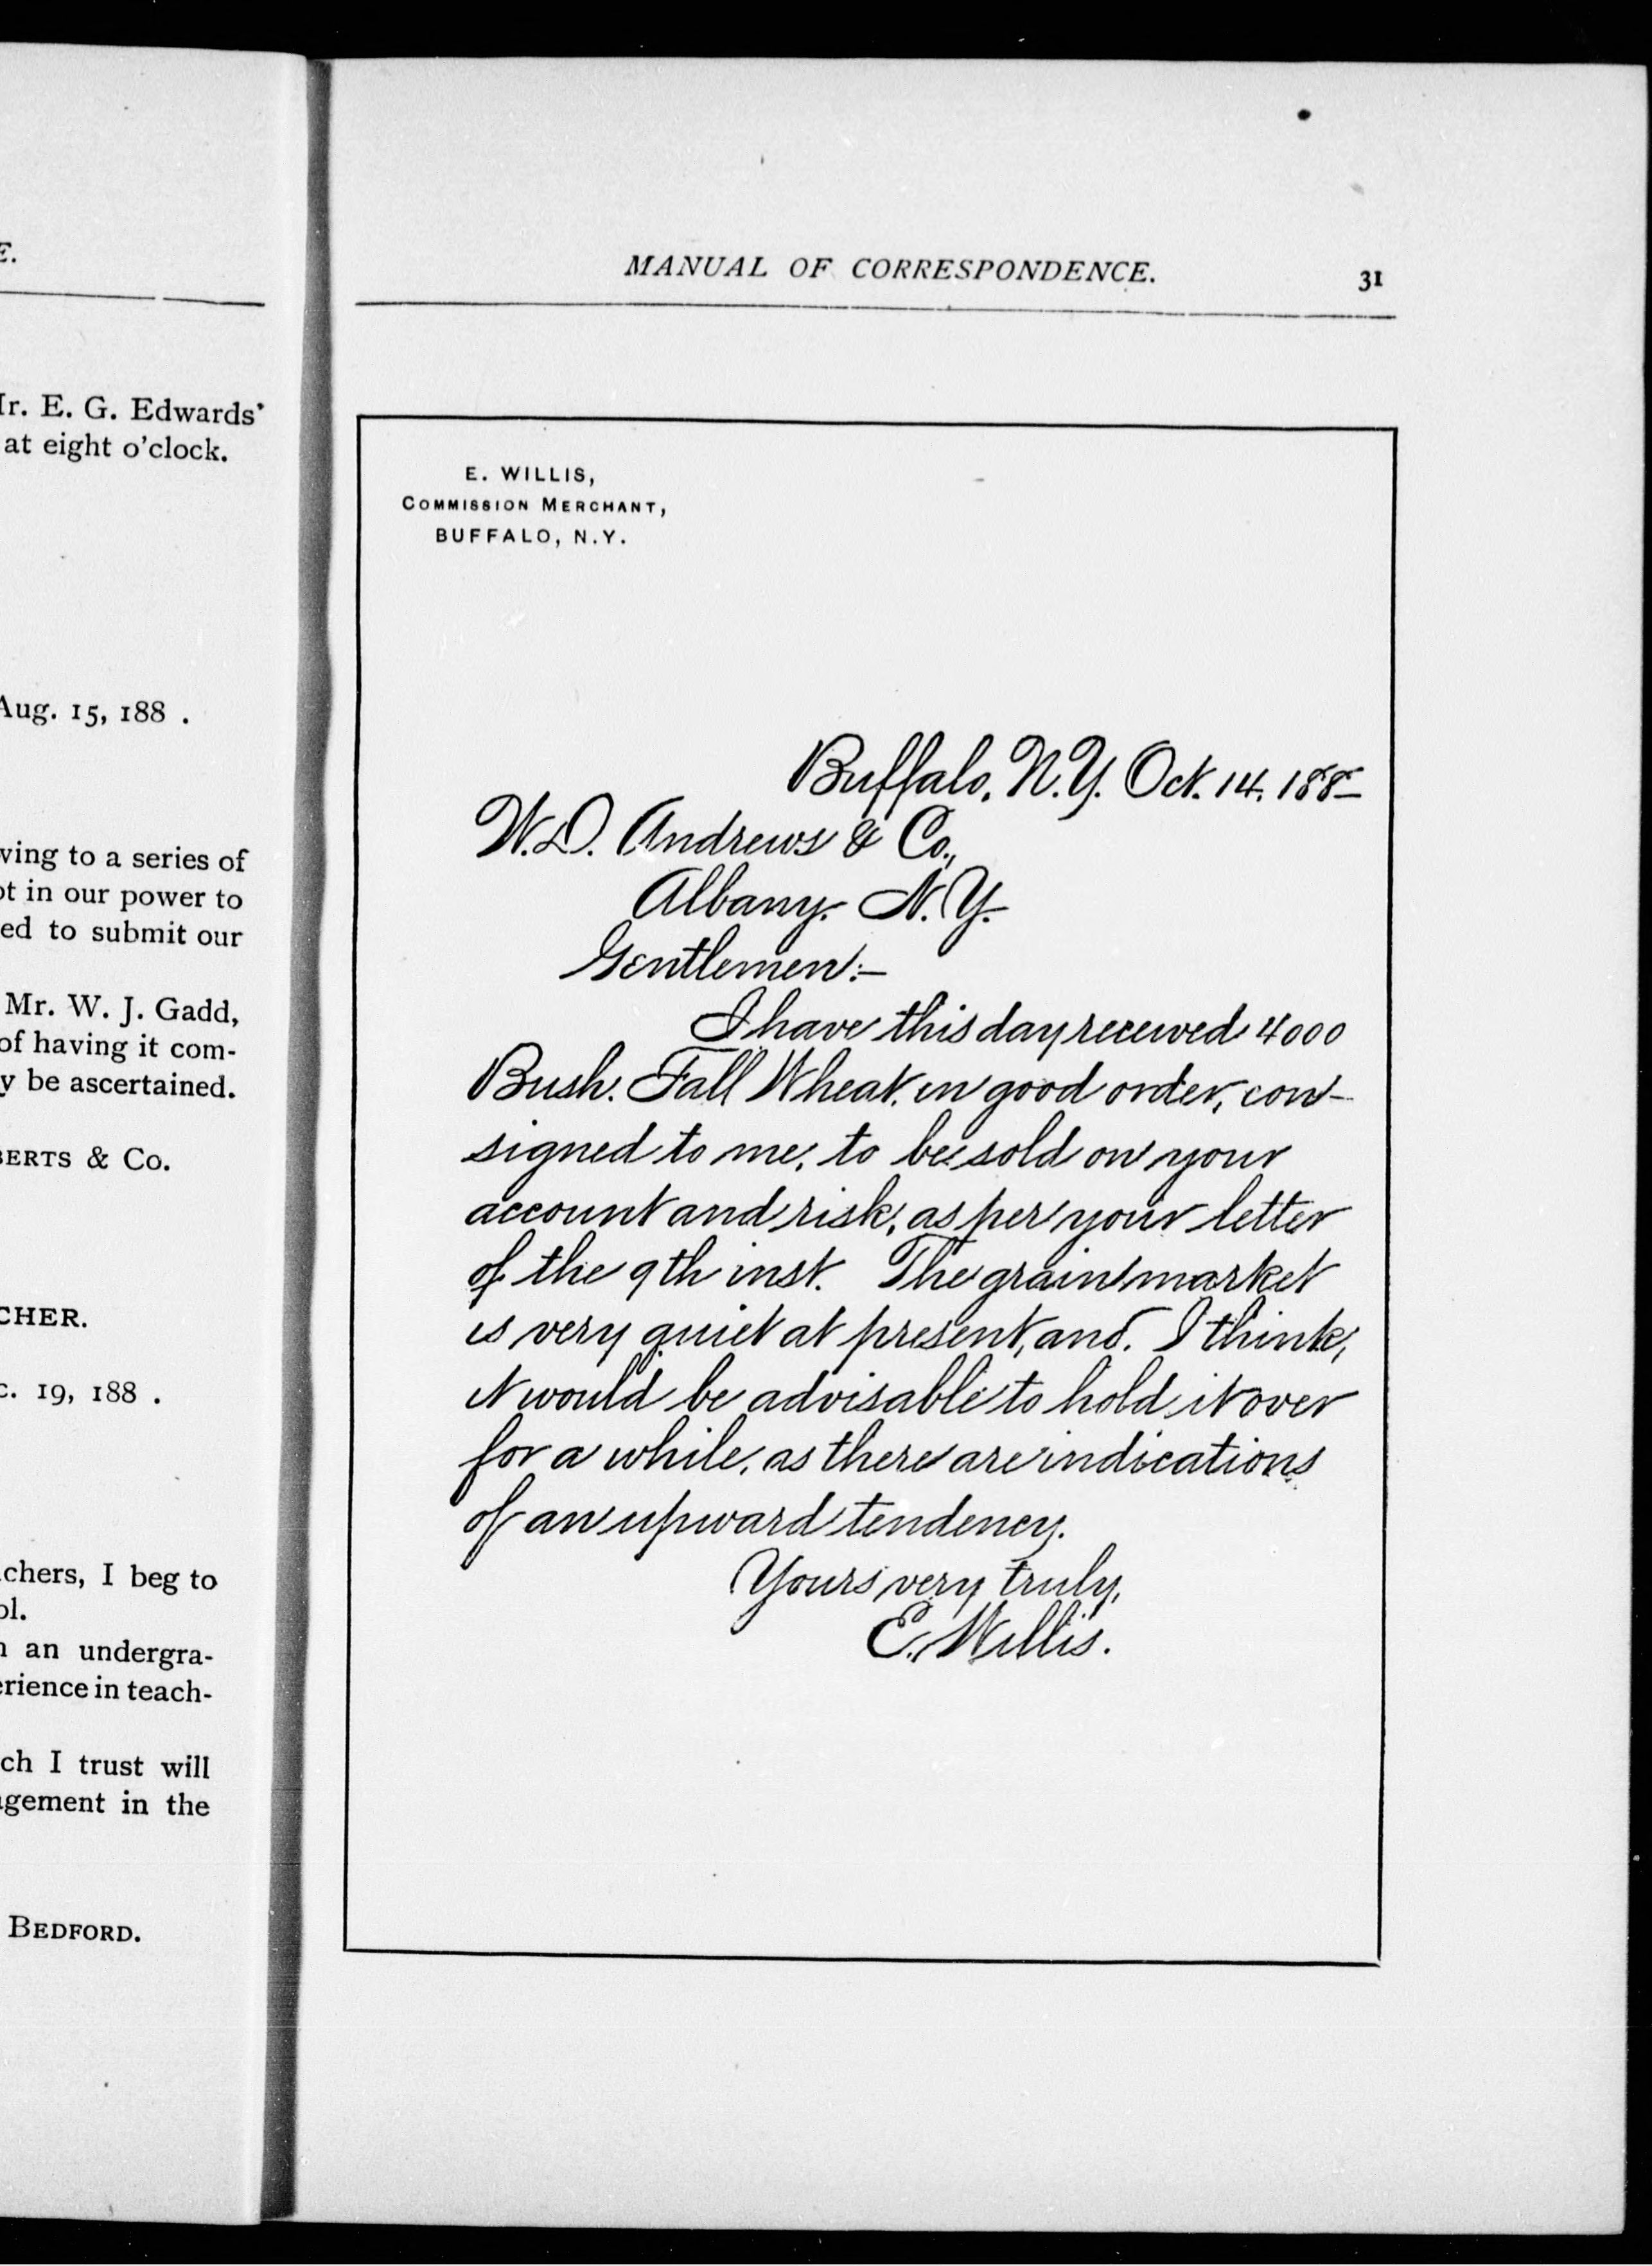 E.
Mr. E. G. Edwards'
at eight o'clock.
Aug. 15, 188 .
to a series of
in our power to
to submit our
Mr. W. J. Gadd,
of having it com-
be ascertained.
& Co.
19, 188 .
I beg to
an undergra-
in teach-
I trust will
in the
BEDFORD.
MANUAL OF CORRESPONDENCE. 31
E. WILLIS,
COMMISSION MERCHANT,
BUFFALO, N.Y.
Buffalo, N.Y. Oct. 14, 188-
W.D. Andrews & Co.,
Albany, N.Y.
Gentlemen:-
I have this day received 4000
Bush. Fall Wheat, in good order, con-
signed to me, to be sold on your
account and risk, as per your letter
of the 9th inst. The grain market
is very quiet at present, and, I think,
it would be advisable to hold it over
for a while, as there are indications
of an upward tendency.
Yours very truly,
E. Willis.